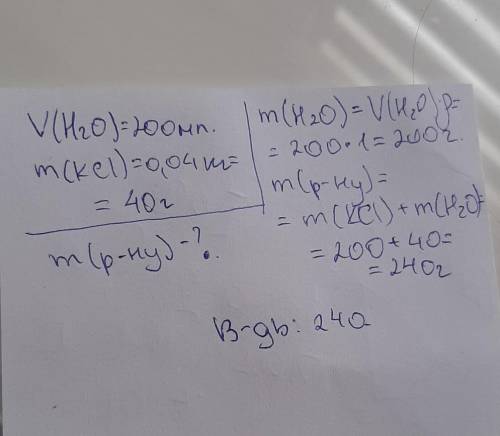 V(H₂O)=200мл.
m(KCl)=0,04кг=
= 40г
m(р-ну)-?
m(H₂O)=V(H₂O)·ρ=
= 200·1=200г.
m(р-ну)=
= m(KCl)+m(H₂O)=
= 200+40=
= 240г
В-дь: 240